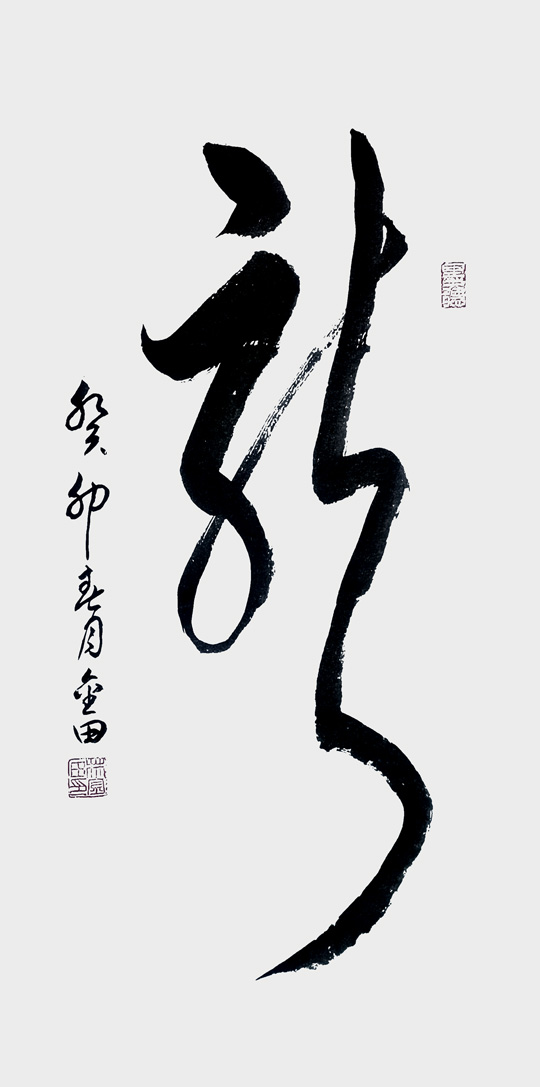 龍
癸卯春月金田